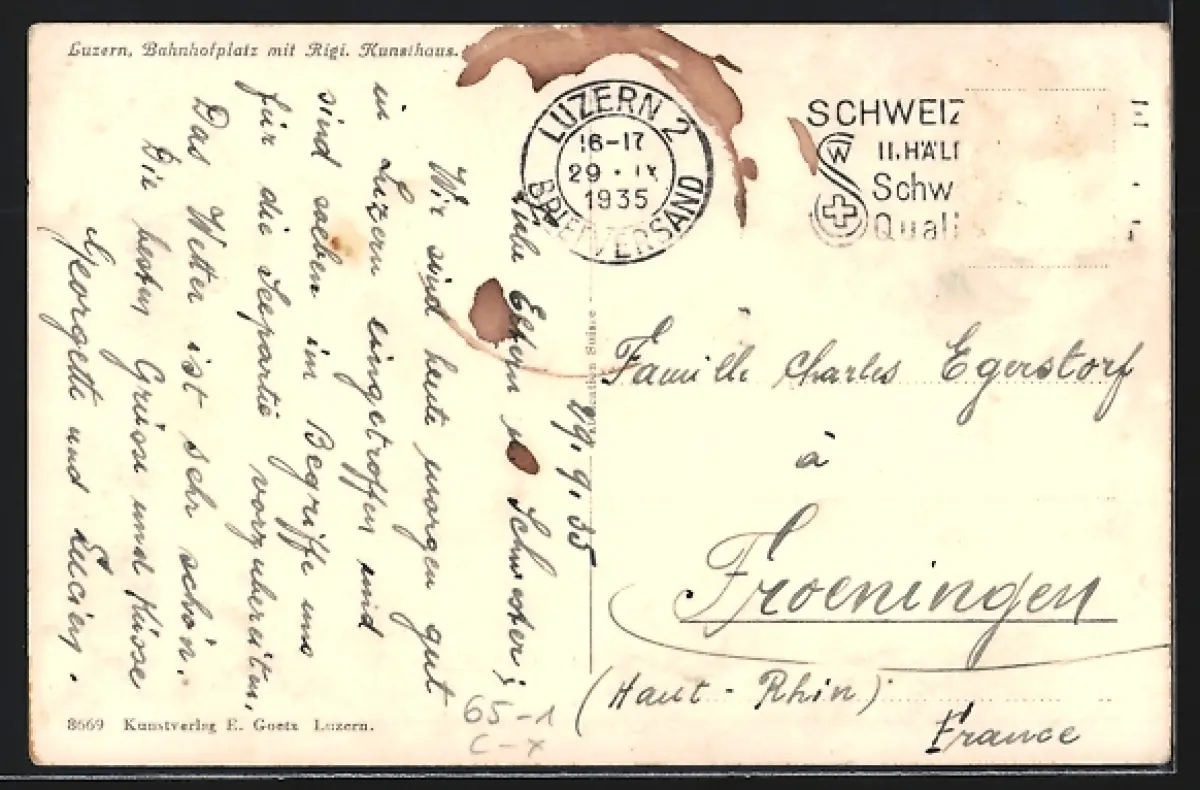 Luzern, Bahnhofplatz mit Rigi. Kunsthaus.
LUZERN 2
16-17
29 · IX
1935
BRIEFVERSAND
SCHWEIZ
II. HÄL
Schw
Quali
W
29. 9. 35
Eltern u. Schwester;
Wir sind heute morgen gut
in Luzern eingetroffen und
sind soeben im Begriffe uns
für die Seepartie vorzubereiten.
Das Wetter ist sehr schön.
Die besten Grüsse und Küsse
Georgette und Lucien.
Famille Charles Egerstorf
à
Froeningen
(Haut-Rhin)
France
65-1
C-X
8669 Kunstverlag E. Goetz Luzern.